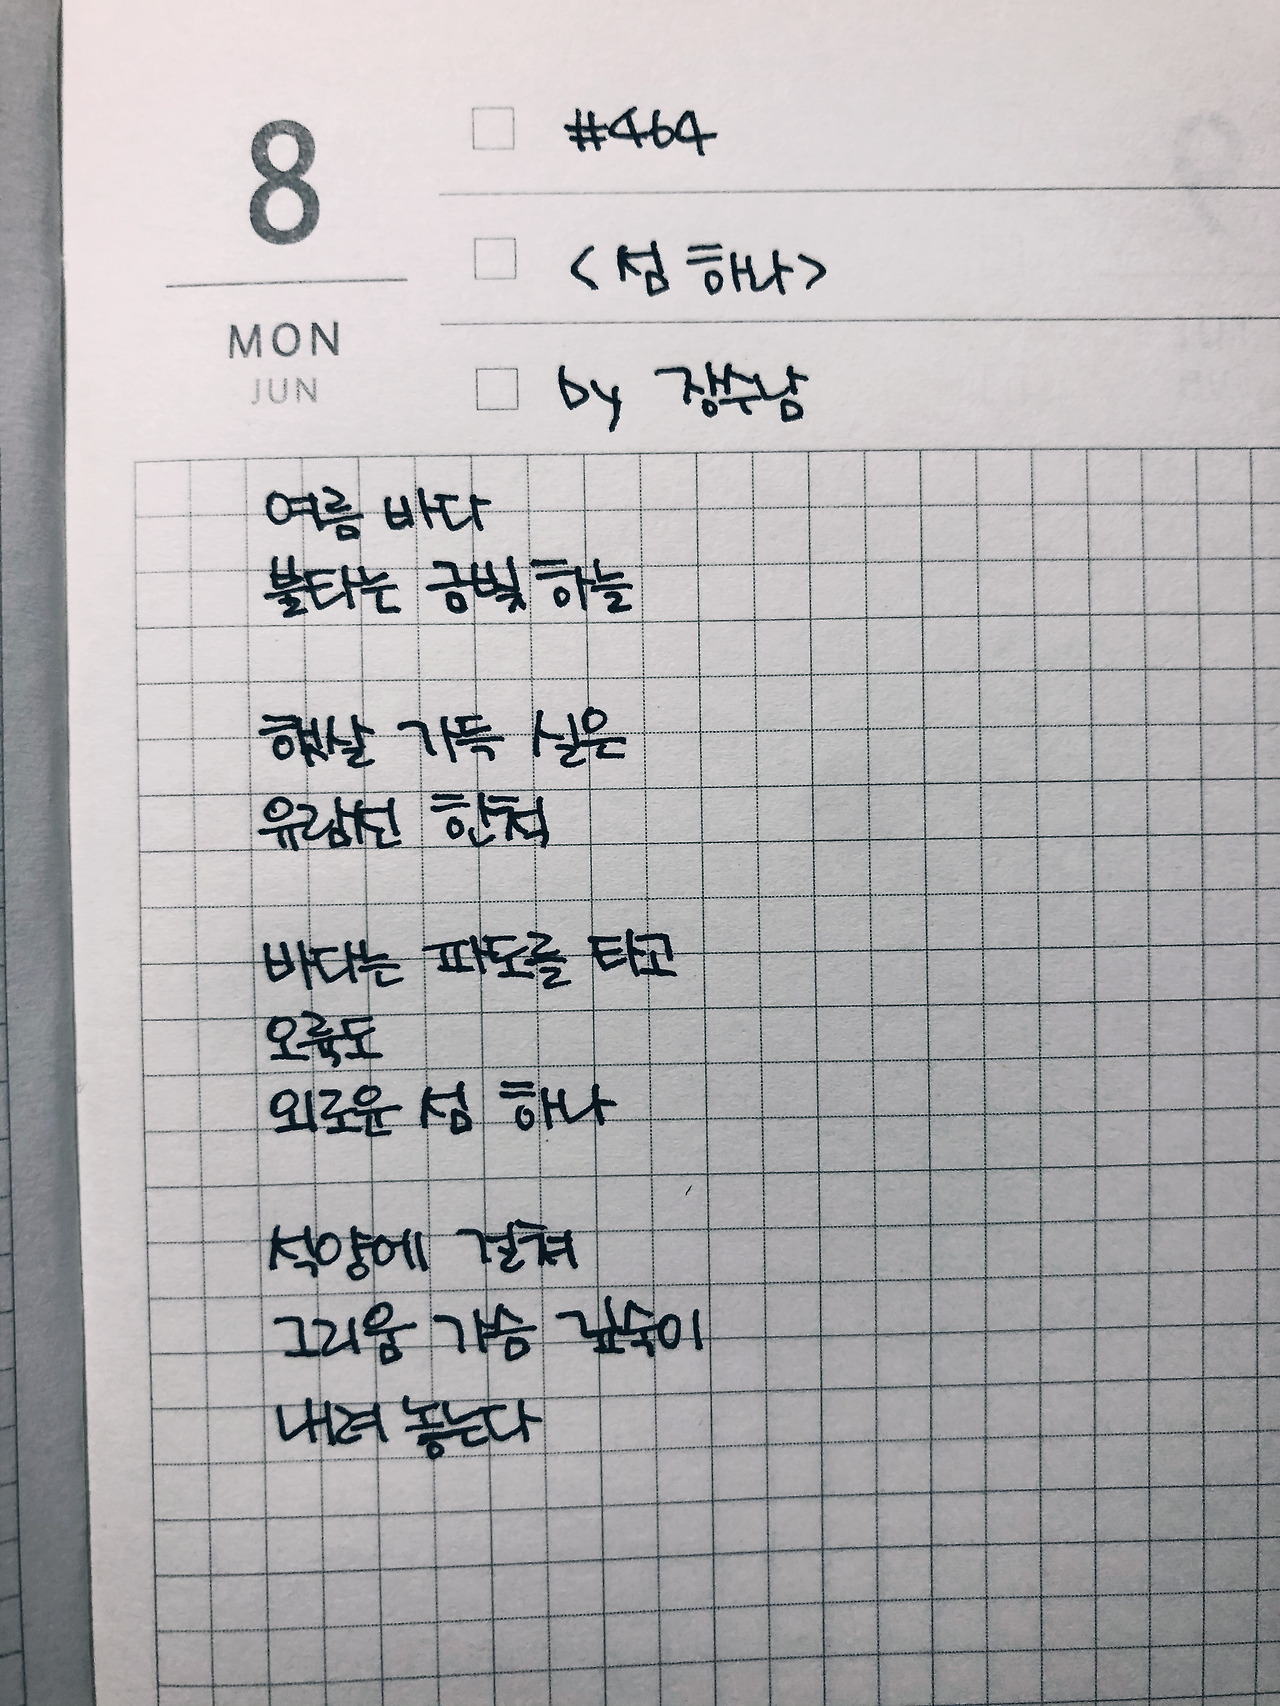 8
MON
JUN
#464
<섬 하나>
by 장수남
여름 바다
불타는 금빛 하늘
햇살 가득 실은
유람선 한척
바다는 파도를 타고
오륙도
외로운 섬 하나
석양에 걸쳐
그리움 가슴 깊숙이
내려 놓는다